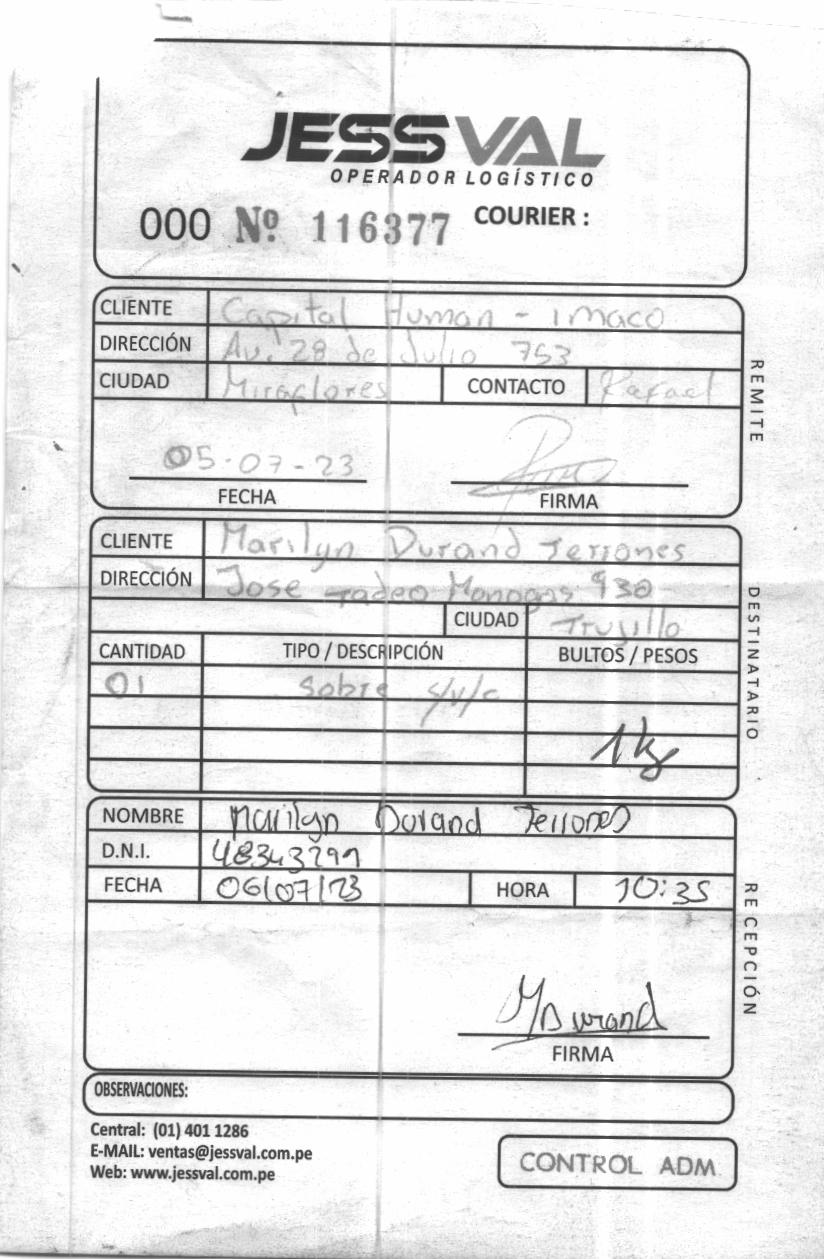 JESSVAL
OPERADOR LOGÍSTICO
000 Nº 116377 COURIER :
REMITE
CLIENTE Capital Human - imaco
DIRECCIÓN Av. 28 de Julio 753
CIUDAD Miraflores CONTACTO Rafael
05-07-23
FECHA FIRMA
DESTINATARIO
CLIENTE Marilyn Durand Terrones
DIRECCIÓN Jose Tadeo Monagas 930
CIUDAD Trujillo
CANTIDAD TIPO / DESCRIPCIÓN BULTOS / PESOS
01 sobre s/v/c
1 kg
RECEPCIÓN
NOMBRE Marilyn Durand Terrones
D.N.I. 48343299
FECHA 06/07/23 HORA 10:35
MDurand
FIRMA
OBSERVACIONES:
Central: (01) 401 1286
E-MAIL: ventas@jessval.com.pe
Web: www.jessval.com.pe
CONTROL ADM